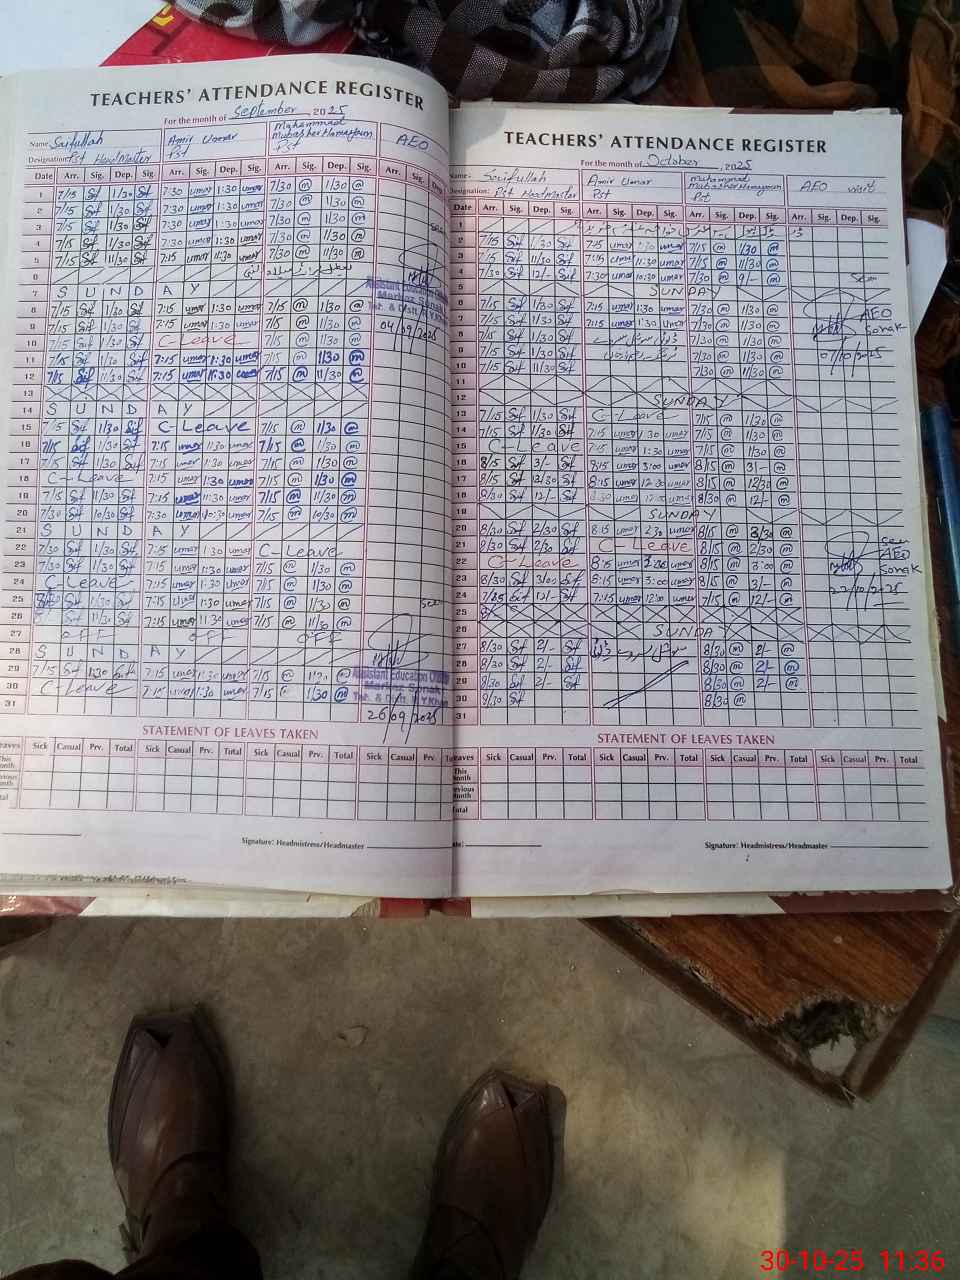 TEACHERS' ATTENDANCE REGISTER
For the month of September 2025
Name Saifullah Amir Umar Muhammad Mubasher Humayoun AEO
Designation Pst HeadMaster Pst Pst
Date Arr. Sig. Dep. Sig. Arr. Sig. Dep. Sig. Arr. Sig. Dep. Sig. Arr. Sig. Dep.
1 7/15 Sf 1/30 Sf 7:30 umar 1:30 umar 7/30 m 1/30 m
2 7/15 Sf 1/30 Sf 7:30 umar 1:30 umar 7/30 m 1/30 m
3 7/15 Sf 1/30 Sf 7:30 umar 1:30 umar 7/30 m 1/30 m
4 7/15 Sf 1/30 Sf 7:30 umar 1:30 umar 7/30 m 1/30 m
5 7/15 Sf 11/30 Sf 7:15 umar 11:30 umar 7/30 m 11/30 m
6
7 SUNDAY
8 7/15 Sf 1/30 Sf 7:15 umar 1:30 umar 7/15 m 1/30 m
9 7/15 Sf 1/30 Sf 7:15 umar 1:30 umar 7/15 m 1/30 m
10 7/15 Sf 1/30 Sf C-Leave 7/15 m 1/30 m
11 7/15 Sf 1/30 Sf 7:15 umar 1:30 umar 7/15 m 1/30 m
12 7/15 Sf 11/30 Sf 7:15 umar 11:30 umar 7/15 m 11/30 m
13
14 SUNDAY
15 7/15 Sf 1/30 Sf C-Leave 7/15 m 1/30 m
16 7/15 Sf 1/30 Sf 7:15 umar 1:30 umar 7/15 m 1/30 m
17 7/15 Sf 1/30 Sf 7:15 umar 1:30 umar 7/15 m 1/30 m
18 C-Leave 7:15 umar 1:30 umar 7/15 m 1/30 m
19 7/15 Sf 11/30 Sf 7:15 umar 11:30 umar 7/15 m 11/30 m
20 7/30 Sf 10/30 Sf 7:30 umar 10:30 umar 7/15 m 10/30 m
21 SUNDAY
22 7/30 Sf 1/30 Sf 7:15 umar 1:30 umar C-Leave
23 7/30 Sf 1/30 Sf 7:15 umar 1:30 umar 7/15 m 1/30 m
24 C-Leave 7:15 umar 1:30 umar 7/15 m 1/30 m
25 Sf 1/30 Sf 7:15 umar 1:30 umar 7/15 m 1/30 m
26 Sf 11/30 Sf 7:15 umar 11:30 umar 7/15 m 11/30 m
27 OFF OFF OFF
28 SUNDAY
29 7/15 1:30 7:15 umar 1:30 umar 7/15 m
30 C-Leave 7:15 umar 1:30 umar 7/15 1/30 m
31
Seen
Assistant Education Officer
Markaz Sonak
Teh. & Distt. R.Y.Khan
04/09/2025
Seen
Assistant Education Officer
Markaz Sonak
Teh. & Distt. R.Y.Khan
26/09/2025
STATEMENT OF LEAVES TAKEN
Leaves Sick Casual Prv. Total Sick Casual Prv. Total Sick Casual Prv. Total Sick Casual Prv.
This Month
Previous Month
Total
Signature: Headmistress/Headmaster
TEACHERS' ATTENDANCE REGISTER
For the month of October 2025
Name. Saifullah Amir Umar Muhammad Mubasher Humayoun AEO visit
Designation: Pst Headmaster Pst Pst
Date Arr. Sig. Dep. Sig. Arr. Sig. Dep. Sig. Arr. Sig. Dep. Sig. Arr. Sig. Dep. Sig.
1
2 7/15 Sf 1/30 Sf 7:15 umar 1:30 umar 7/15 m 1/30 m
3 7/15 Sf 11/30 Sf 7:15 umar 11:30 umar 7/15 m 11/30 m
4 7/30 Sf 12/- Sf 7:30 umar 10:30 umar 7/30 m 9/- m
5 SUNDAY
6 7/15 Sf 1/30 Sf 7:15 umar 1:30 umar 7/30 m 1/30 m
7 7/15 Sf 1/30 Sf 7:15 umar 1:30 umar 7/30 m 1/30 m
8 7/15 Sf 1/30 Sf 7/30 m 1/30 m
9 7/15 Sf 1/30 Sf 7/30 m 1/30 m
10 7/15 Sf 11/30 Sf 7/30 m 11/30 m
11
12 SUNDAY
13 7/15 Sf 1/30 Sf C-Leave 7/15 m 1/30 m
14 7/15 Sf 1/30 Sf 7:15 umar 1:30 umar 7/15 m 1/30 m
15 C-Leave 7:15 umar 1:30 umar 7/15 m 1/30 m
16 8/15 Sf 3/- Sf 8:15 umar 3:00 umar 8/15 m 3/- m
17 8/15 Sf 12/30 Sf 8:15 umar 12:30 umar 8/15 m 12/30 m
18 8/30 Sf 12/- Sf 8:30 umar umar 8/30 m 12/- m
19 SUNDAY
20 8/30 Sf 2/30 Sf 8:15 umar 2:30 umar 8/15 m 2/30 m
21 8/30 Sf 2/30 Sf C-Leave 8/15 m 2/30 m
22 C-Leave 8:15 umar umar 8/15 m 3:00 m
23 8/30 Sf 3/00 Sf 8:15 umar 3:00 umar 8/15 m 3/- m
24 Sf 12/- Sf 7:15 umar 12:00 umar 7/15 m 12/- m
25
26 SUNDAY
27 8/30 Sf 2/- Sf 8/30 m 2/- m
28 8/30 Sf 2/- Sf 8/30 m 2/- m
29 8/30 Sf 2/- Sf 8/30 m 2/- m
30 8/30 Sf 8/30 m
31
Seen
AEO
Sonak
07/10/2025
Seen
AEO
Sonak
22/10/2025
STATEMENT OF LEAVES TAKEN
Leaves Sick Casual Prv. Total Sick Casual Prv. Total Sick Casual Prv. Total Sick Casual Prv. Total
This Month
Previous Month
Total
Date: Signature: Headmistress/Headmaster
30-10-25 11:36